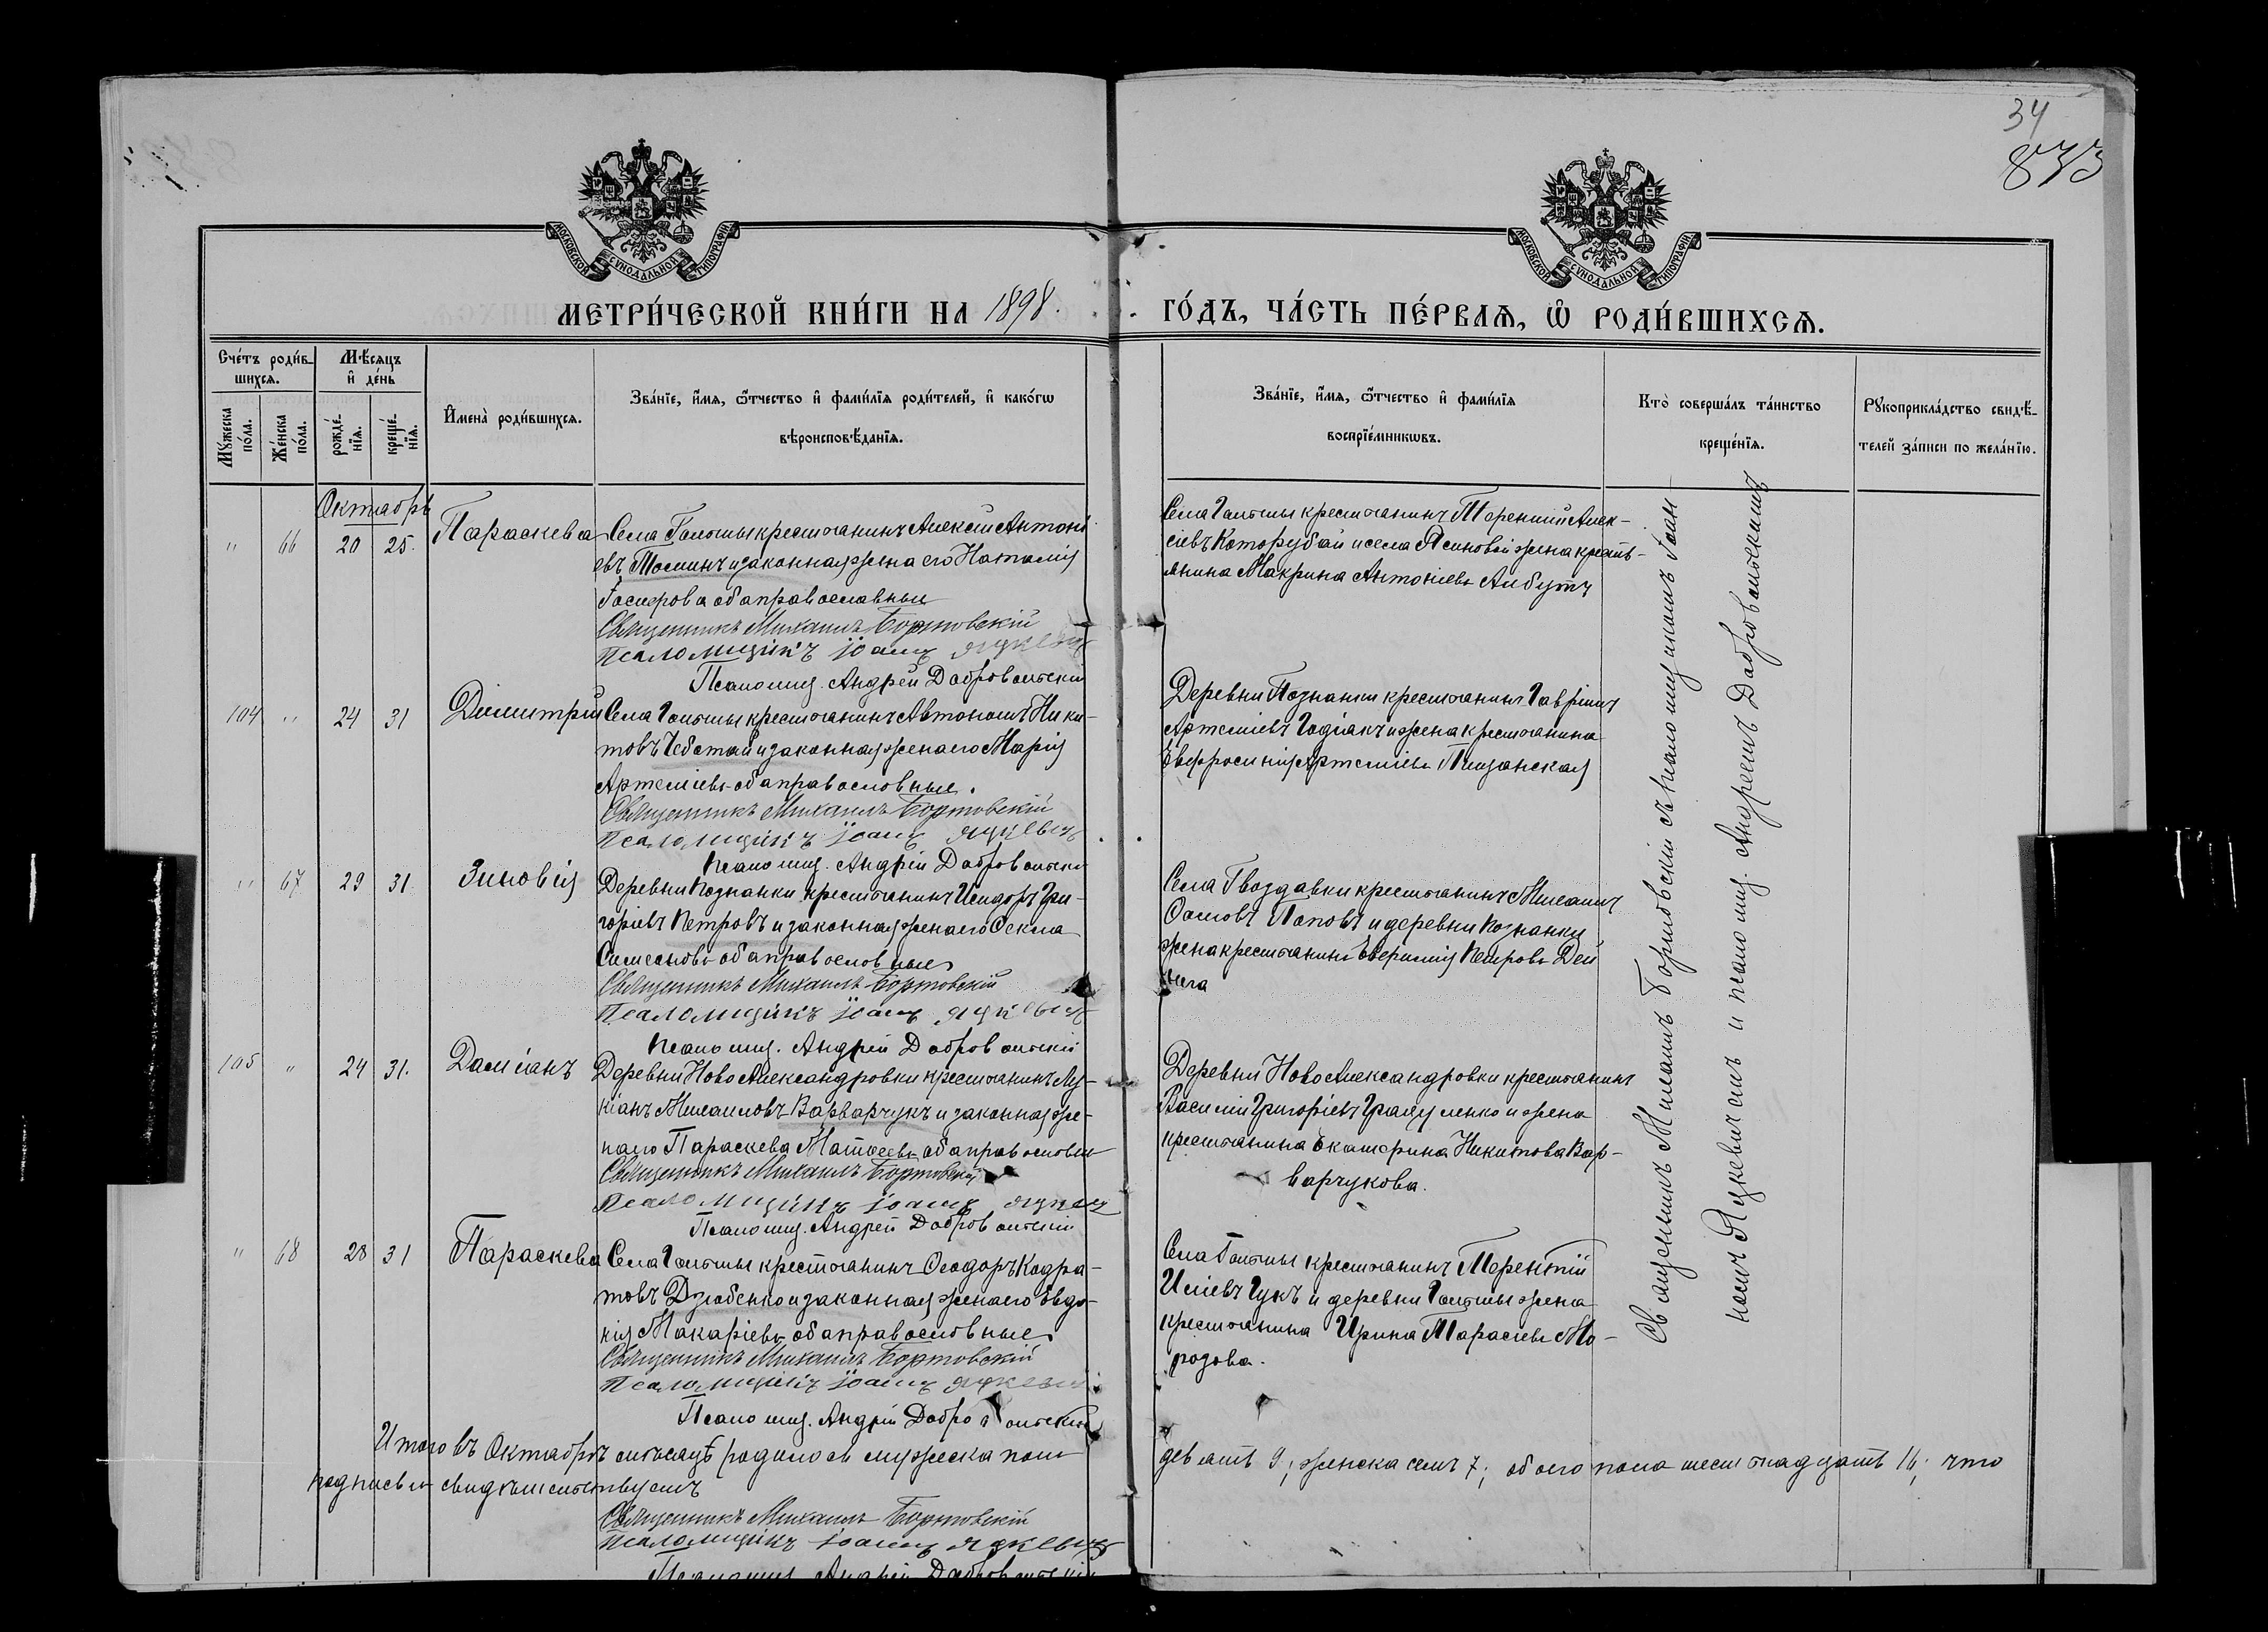 34
833
МОСКОВСКОЙ СѴНОДАЛЬНОЙ ТИПОГРАФІИ
МОСКОВСКОЙ СѴНОДАЛЬНОЙ ТИПОГРАФІИ
МЕТРИ́ЧЕСКОЙ КНИ́ГИ НА 1898.
ГО́ДЪ, ЧА́СТЬ ПЕ́РВАѦ, Ѡ҆ РОДИ́ВШИХСѦ.
Сче́тъ роди́в-
шихсѧ.
Мꙋ́жеска по́ла.
Же́нска по́ла.
Мѣ́сѧцъ
и҆ де́нь
рожде́-нїѧ.
креще́-нїѧ.
И҆мена̀ роди́вшихсѧ.
Зва́нїе, и҆́мѧ, ѻ҆́тчество и҆ фами́лїѧ роди́телей, и҆ како́гѡ
вѣроисповѣ́данїѧ.
Зва́нїе, и҆́мѧ, ѻ҆́тчество и҆ фами́лїѧ
воспрїе́мникѡвъ.
Кто̀ соверша́лъ та́инство
креще́нїѧ.
Рꙋкоприкла́дство свидѣ́-
телей за́писи по жела́нїю.
Октябрь
" 66 20 25. Параскева
Села Гольмы крестьянинъ Алексій Антоні-
евъ Томинъ и законная жена его Наталія
оба православные
Священникъ Михаилъ Бортовскій
Псаломщикъ Іоаннъ Яцкевичъ
Псаломщ. Андрей Добровольскій
Села Гольмы крестьянинъ Терентій Алек-
сіевъ Которубай и села Ясиновой жена кресть-
янина Макрина Антоніева Албутъ
104 " 24 31 Димитрій
Села Гольмы крестьянинъ Автономъ Ники-
товъ Чеботай и законная жена его Марія
Артеміева оба православные.
Священникъ Михаилъ Бортовскій
Псаломщикъ Іоаннъ Яцкевичъ
Псаломщ. Андрей Добровольскій
Деревни Познанки крестьянинъ Гавріилъ
Артеміевъ Годіакъ и жена крестьянина
Евфросинія Артеміева Пищанская
" 67 29 31 Зиновія
Деревни Познанки крестьянинъ Исидоръ Гри-
горіевъ Петровъ и законная жена его Ѳекла
Симеонова оба православные
Священникъ Михаилъ Бортовскій
Псаломщикъ Іоаннъ Яцкевичъ
Псаломщ. Андрей Добровольскій
Села Гвоздавки крестьянинъ Михаилъ
Поповъ и деревни Познанки
жена крестьянина Евфимія Петрова Дей
нега
105 " 24 31. Даміанъ
Деревни Ново Александровки крестьянинъ Лу-
кіанъ Михаиловъ Варварчукъ и законная же-
на его Параскева Матѳеева оба православные
Священникъ Михаилъ Бортовскій
Псаломщикъ Іоаннъ Яцкевичъ
Псаломщ. Андрей Добровольскій
Деревни Ново Александровки крестьянинъ
Василій Григоріевъ и жена
крестьянина Екатерина Никитова Вар-
варчукова.
" 68 28 31 Параскева
Села Гольмы крестьянинъ Ѳеодоръ Кодра-
товъ Дзюбенко и законная жена его Евдо-
кія Макаріева оба православные
Священникъ Михаилъ Бортовскій
Псаломщикъ Іоаннъ Яцкевичъ
Псаломщ. Андрей Добровольскій
Села Гольмы крестьянинъ Терентій
Иліевъ Гукъ и деревни Гольмы жена
крестьянина Ирина Тарасіева Мо-
розова.
Священникъ Михаилъ Бортовскій съ псаломщикомъ Іоан-
номъ Яцкевичемъ и псаломщ. Андреемъ Добровольскимъ
Итого въ Октябрѣ мѣсяцѣ родилось мужеска пола
девять 9; женска семь 7; обоего пола шестнадцать 16; что
подписью свидѣтельствуемъ
Священникъ Михаилъ Бортовскій
Псаломщикъ Іоаннъ Яцкевичъ
Псаломщ. Андрей Добровольскій